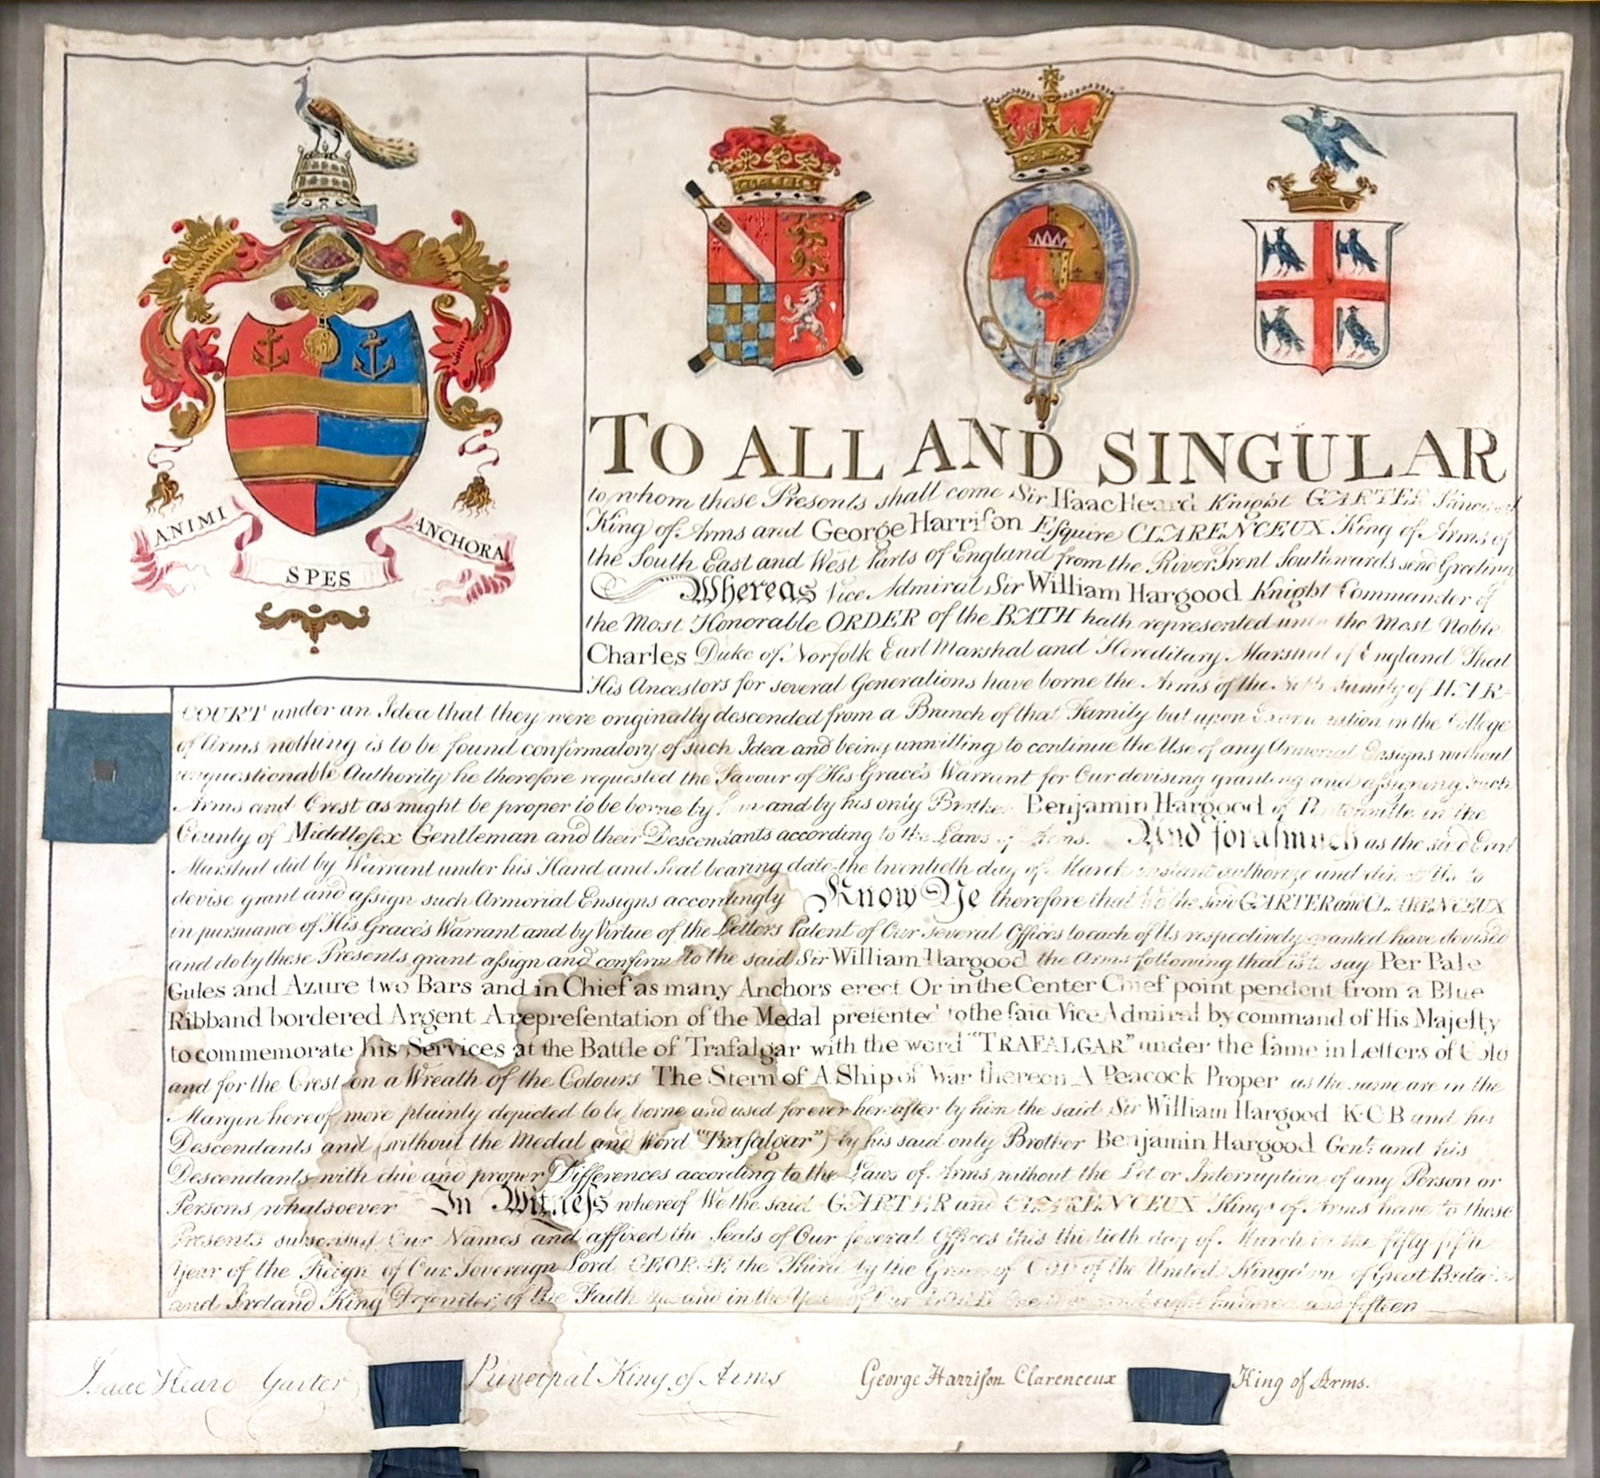 ANIMI
SPES
ANCHORA
TO ALL AND SINGULAR
to whom these Presents shall come Sir Isaac Heard Knight GARTER
King of Arms and George Harrison Esquire CLARENCEUX King of Arms of
the South East and West Parts of England from the River Trent Southwards send Greeting
Whereas Vice Admiral Sir William Hargood Knight Commander of
the Most Honorable ORDER of the BATH hath represented unto the Most Noble
Charles Duke of Norfolk Earl Marshal and Hereditary Marshal of England That
His Ancestors for several Generations have borne the Arms of the Family of HAR-
COURT under an Idea that they were originally descended from a Branch of that Family but upon in the College
of Arms nothing is to be found confirmatory of such Idea and being unwilling to continue the Use of any Armorial Ensigns without
unquestionable Authority he therefore requested the Favour of His Grace's Warrant for Our devising granting and assigning such
Arms and Crest as might be proper to be borne by and by his only Brother Benjamin Hargood of in the
County of Middlesex Gentleman and their Descendants according to the Laws of Arms. And forasmuch as the said Earl
Marshal did by Warrant under his Hand and Seal bearing date the twentieth day of March instant authorize and direct Us to
devise grant and assign such Armorial Ensigns accordingly Know Ye therefore that We the said GARTER and CLARENCEUX
in pursuance of His Grace's Warrant and by Virtue of the Letters Patent of Our several Offices to each of Us respectively granted have devised
and do by these Presents grant assign and confirm to the said Sir William Hargood the Arms following that is to say Per Pale
Gules and Azure two Bars and in Chief as many Anchors erect Or in the Center Chief point pendent from a Blue
Ribband bordered Argent A representation of the Medal presented to the said Vice Admiral by command of His Majesty
to commemorate his Services at the Battle of Trafalgar with the word "TRAFALGAR" under the same in Letters of Gold
and for the Crest on a Wreath of the Colours The Stern of A Ship of War thereon A Peacock Proper as the same are in the
Margin hereof more plainly depicted to be borne and used for ever hereafter by him the said Sir William Hargood K·C·B and his
Descendants and (without the Medal and Word "Trafalgar") by his said only Brother Benjamin Hargood Gent: and his
Descendants with due and proper Differences according to the Laws of Arms without the Let or Interruption of any Person or
Persons whatsoever In Witness whereof We the said GARTER and CLARENCEUX Kings of Arms have to these
Presents subscribed Our Names and affixed the Seals of Our several Offices this thirtieth day of March in the fifty fifth
Year of the Reign of Our Sovereign Lord GEORGE the Third by the Grace of GOD of the United Kingdom of Great Britain
and Ireland King Defender of the Faith &c and in the Year of Our LORD One thousand eight hundred and fifteen
Isaac Heard Garter Principal King of Arms George Harrison Clarenceux King of Arms.